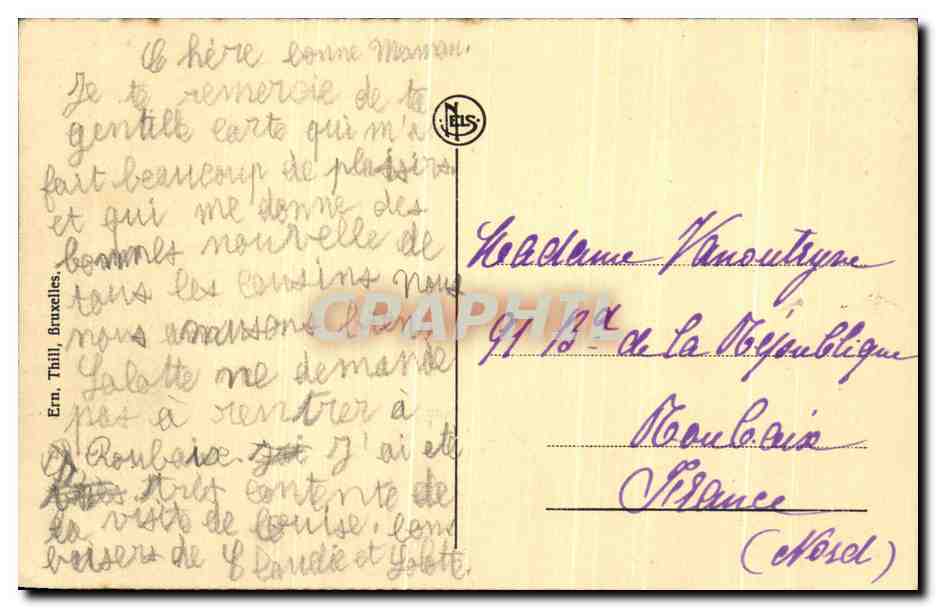 Chère bonne Maman.
Je te remercie de ta
gentille carte qui m'a
fait beaucoup de plaisirs
et qui me donne des
bonnes nouvelle de
tous les cousins nous
nous amusons bien
Lolotte ne demande
pas à rentrer à
Roubaix. J'ai été
très contente de
la visite de Louise. bons
baisers de Claudie et Lolotte.
Ern. Thill, Bruxelles.
NELS
Madame Vanoutryve
91 Bd de la République
Roubaix
France
(Nord)
CPAPHIL